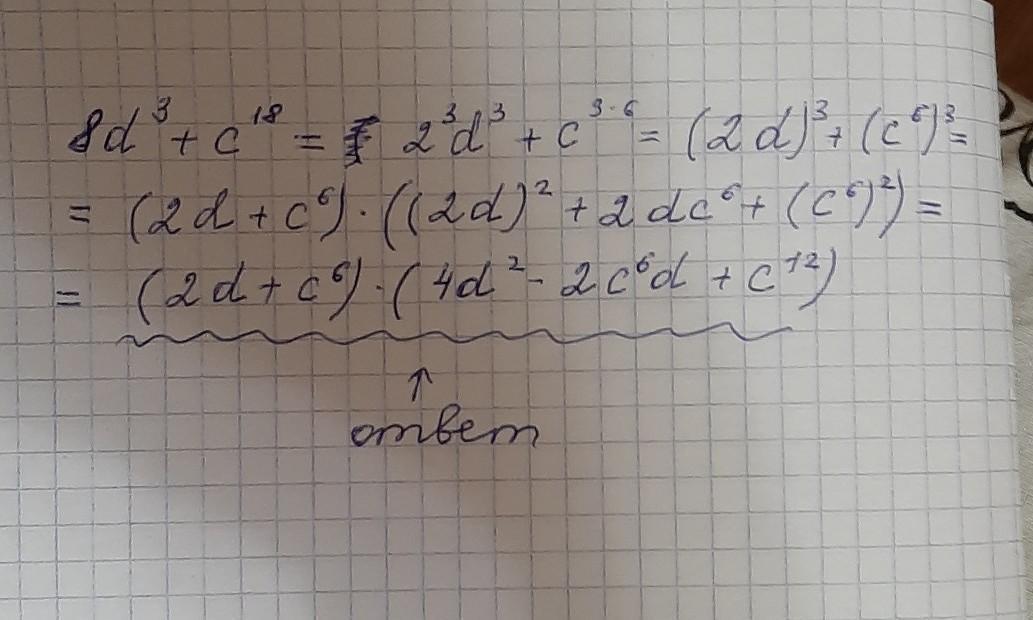 8d³ + c¹⁸ = 2³d³ + c³·⁶ = (2d)³ + (c⁶)³ =
= (2d + c⁶) · ((2d)² + 2dc⁶ + (c⁶)²) =
= (2d + c⁶) · (4d² - 2c⁶d + c¹²)
↑
ответ